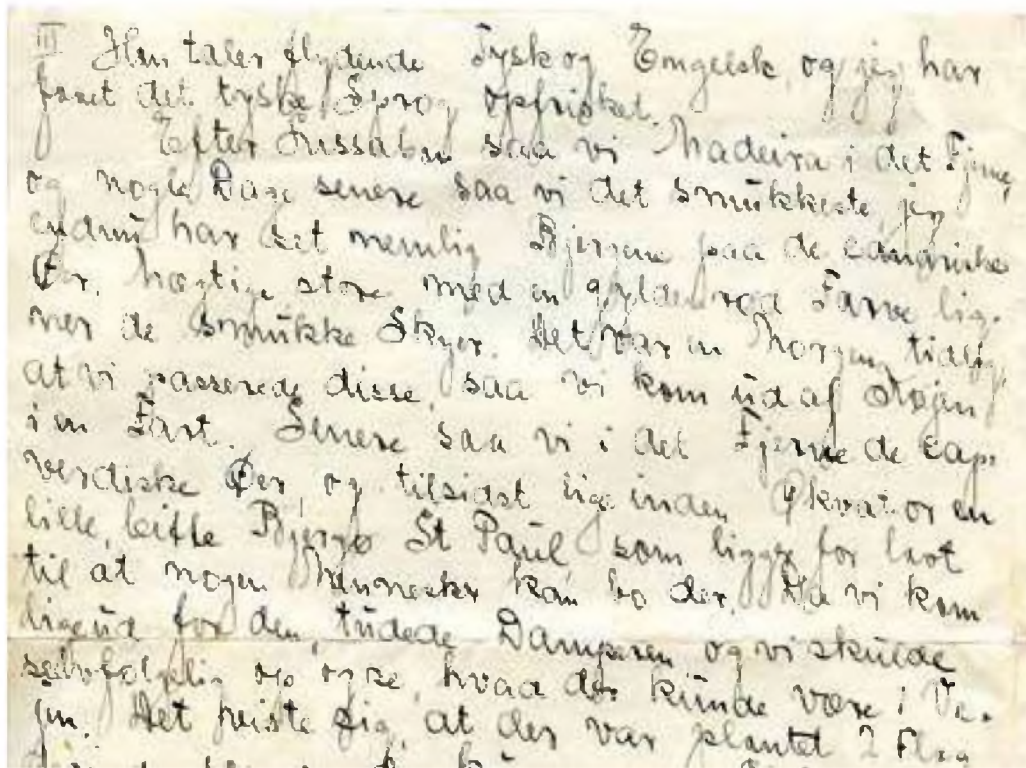 III Han taler flydende Tysk og Engelsk, og jeg har
faaet det tyske Sprog opfrisket.
Efter Lissabon saa vi Madeira i det Fjerne,
og nogle Dage senere saa vi det smukkeste, jeg
endnu har set nemlig Bjergene paa de canariske
Øer. Mægtige store med en gylden rød Farve lig-
ner de smukke Skyer. Det var en Morgen tidlig,
at vi passerede disse, saa vi kom ud af Køjen
i en Fart. Senere saa vi i det Fjerne de Cap-
verdiske Øer, og tilsidst lige inden Ækvator en
lille, bitte Bjergø St Paul som ligger for lavt
til at nogen Mennesker kan bo der. Da vi kom
ligeud for den, tudede Damperen og vi skulde
selvfølgelig op og se, hvad der kunde være i Ve-
jen. Det viste sig, at der var plantet 2 Flag